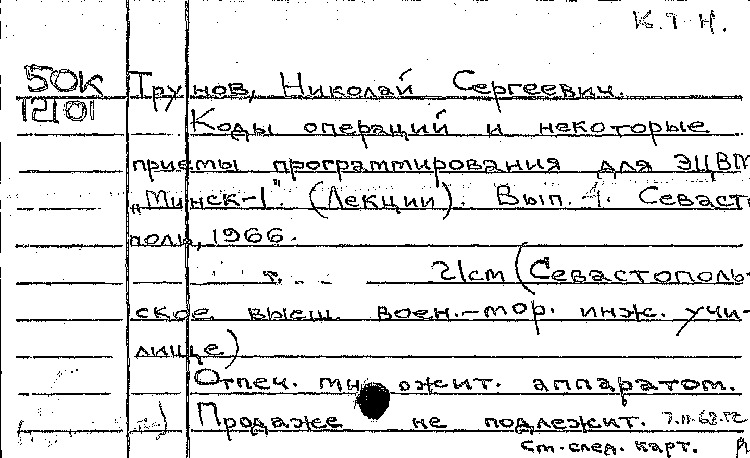 К.Т.Н.
50К Трунов, Николай Сергеевич.
12101
Коды операций и некоторые
приемы программирования для ЭЦВМ
„Минск-1". (Лекции). Вып. 1. Севасто
поль, 1966.
т. 21см (Севастополь-
ское высш. воен.-мор. инж. учи-
лище)
Отпеч. мн ожит. аппаратом.
Продаже не подлежит.
См. след. карт.